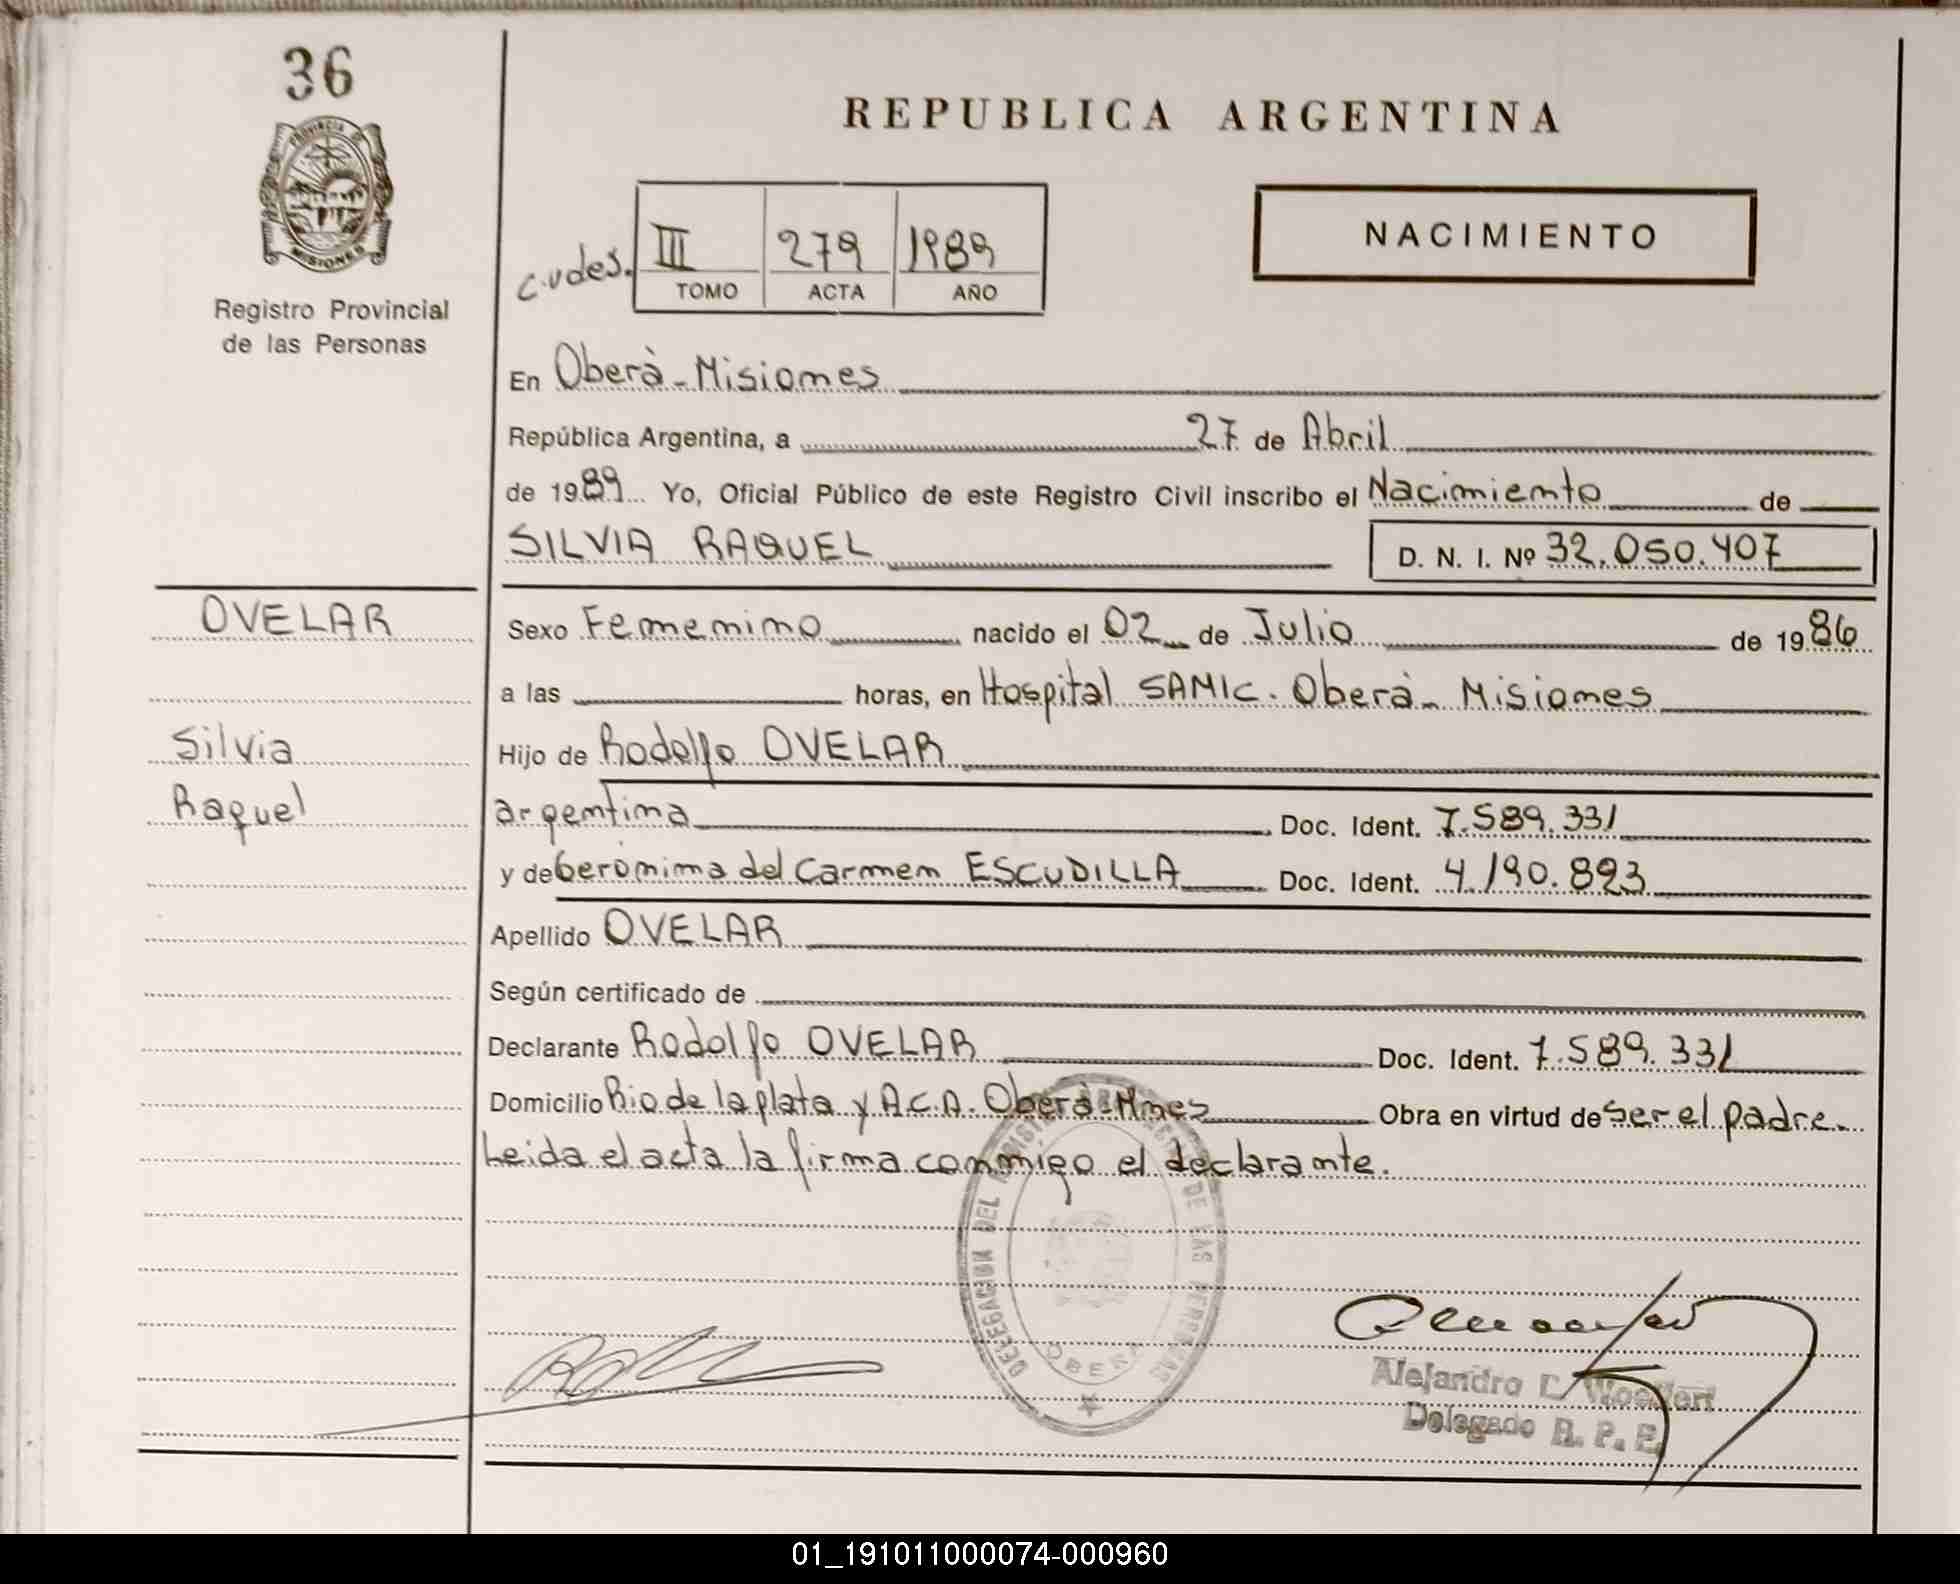 36
PROVINCIA DE
MISIONES
Registro Provincial
de las Personas
REPUBLICA ARGENTINA
NACIMIENTO
c.udes. III 279 1989
TOMO ACTA AÑO
En Oberà - Misiones
República Argentina, a 27 de Abril
de 1989 Yo, Oficial Público de este Registro Civil inscribo el Nacimiento de
SILVIA RAQUEL D. N. I. Nº 32.050.407
OVELAR
Silvia
Raquel
Sexo Femenino nacido el 02 de Julio de 1986
a las horas, en Hospital SAMIC. Oberà - Misiones
Hijo de Rodolfo OVELAR
argentina Doc. Ident. 7.589.331
y de Gerònima del Carmen ESCUDILLA Doc. Ident. 4.190.893
Apellido OVELAR
Según certificado de
Declarante Rodolfo OVELAR Doc. Ident. 7.589.331
Domicilio Rio de la plata y A.C.A. Oberà - Mnes Obra en virtud de ser el padre.
Leida el acta la firma conmigo el declarante.
DELEGACION DEL DE LAS PERSONAS
OBERA
Alejandro
Delegado R. P. P.
01_191011000074-000960